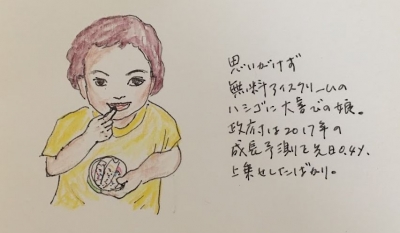 思いがけず
無料アイスクリームの
ハシゴに大喜びの娘。
政府は2017年の
成長予測を先日0.4%
上乗せしたばかり。